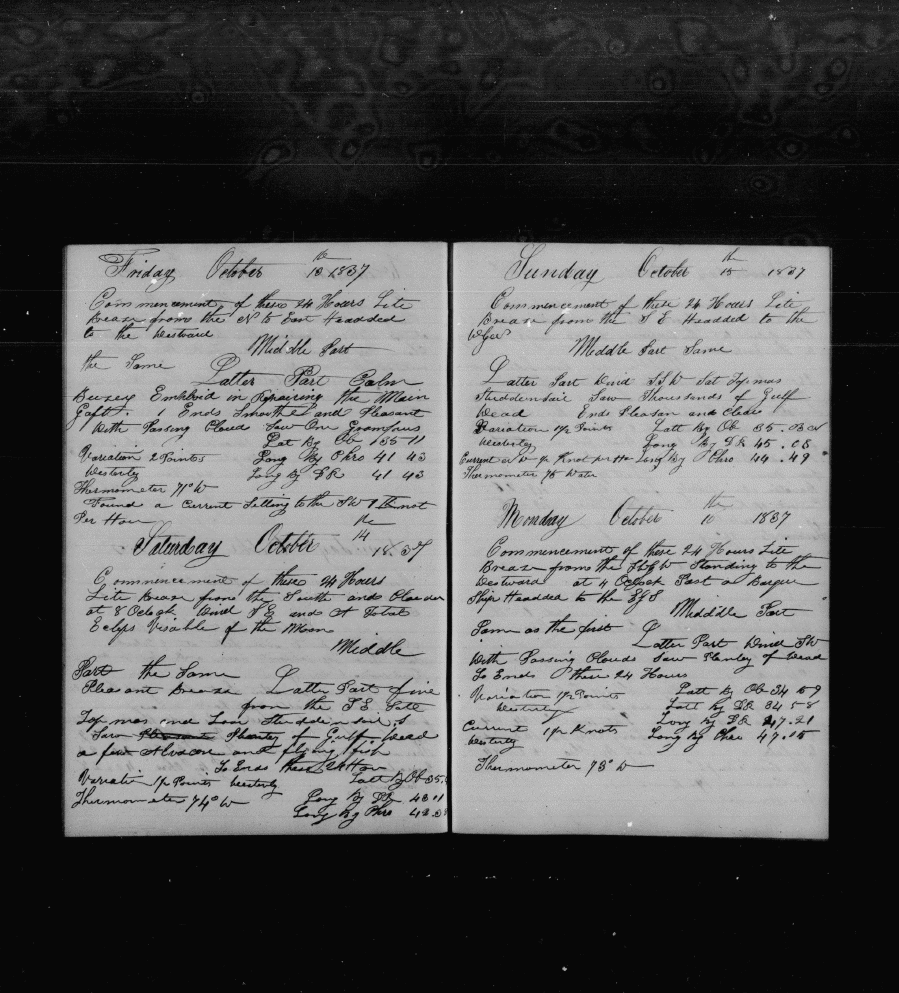 Friday October 13th 1837
Commencement of these 24 Hours Lite
Breaze from the N to East Headded
to the Westward
Middle Part
the Same
Latter Part Calm
Busey Emploid in Repairing the Main
Gaft. Ends Smooth and Pleasant
With Passing Cloud Saw One Grampus
Lat By Ob 35-11
Variation 2 Points Long By Chro 41 43
Westerly Long By DR 41 43
Thermometer 71° W
Found a Current Setting to the SW 1 Knot
Per Hour
Saturday October 14th 1837
Commencement of these 24 Hours
Lite Breaze from the South and Clouder
at 8 Oclock Wind SE and A Total
Eclips Visable of the Moon
Middle
Part the Same
Pleasant Breaze Latter Part fine
from the SE Sete
Top mas and Loar Studdensails
Saw Pleasant Plenty of Gulf Wead
a few and flying fish
To Ends these 24 Hou
Variation 1/2 Points Westerly Latt By Ob 35.
Thermometer 74° W Long By DR 43 11
Long By Chro 42
Sunday October 15th 1837
Commencement of these 24 Hours Lite
Breaze from the S E Headded to the
Middle Part Same
Latter Part Wind SSW Sat Topmas
Studdensail Saw Thousands of Gulf
Wead Ends Pleasan and Clear
Variation 1 1/2 Points Latt By Ob 35.03
Westerly Long By DR 45.08
Current Knot per Ho Long By Chro 44.49
Thermometer 75 Water
Monday October 16th 1837
Commencement of these 24 Hours Lite
Breaze from the SbW Standing to the
Westward at 4 Oclock Past a Barque
Ship Headded to the EbS
Middle Part
Same as the first Latter Part Wind SW
With Passing Clouds Saw Plenley of Wead
So Ends these 24 Hours
Variation 1 1/2 Points Latt By Ob 34 59
Westerly Latt by DR 34 58
Current 1/2 Knots Long By DR 47.21
Westerly Long By Chro 47.05
Thermometer 73° W